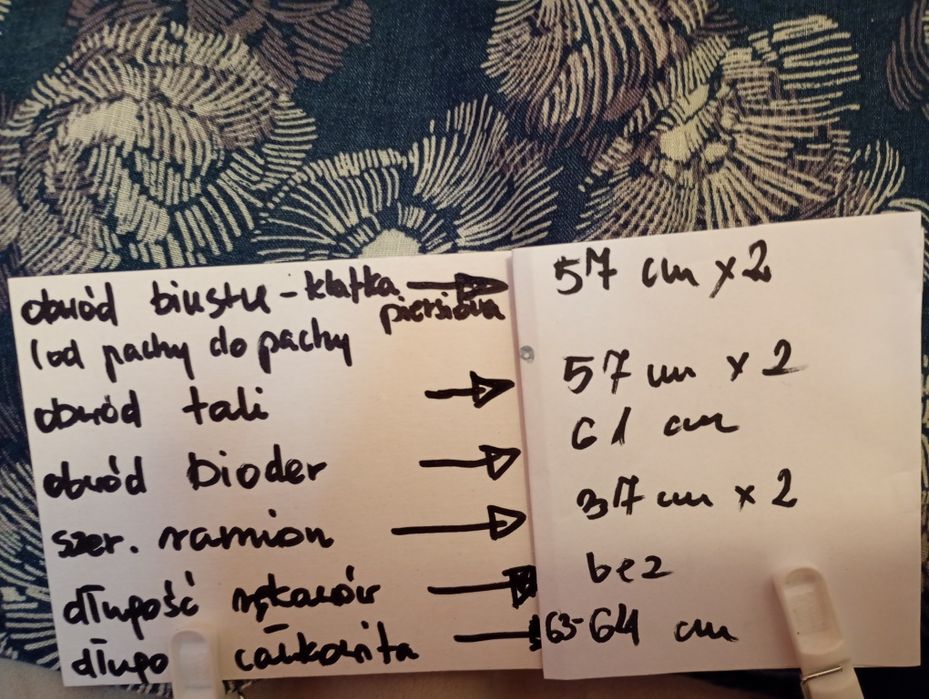 obwód biustu - klatka piersiowa → 57 cm x 2
(od pachy do pachy
obwód tali → 57 cm x 2
61 cm
obwód bioder →
37 cm x 2
szer. ramion →
bez
długość rękawów →
długo całkowita → 63-64 cm